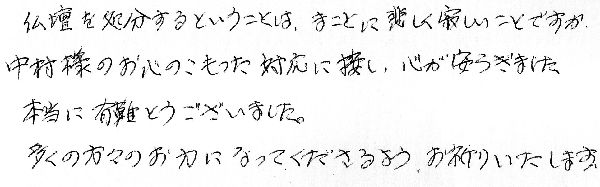 仏壇を処分するということは、まことに悲しく寂しいことですが
中村様のお心のこもった対応に接し、心が安らぎました
本当に有難とうございました。
多くの方々のお力になってくださるよう、お祈りいたします。